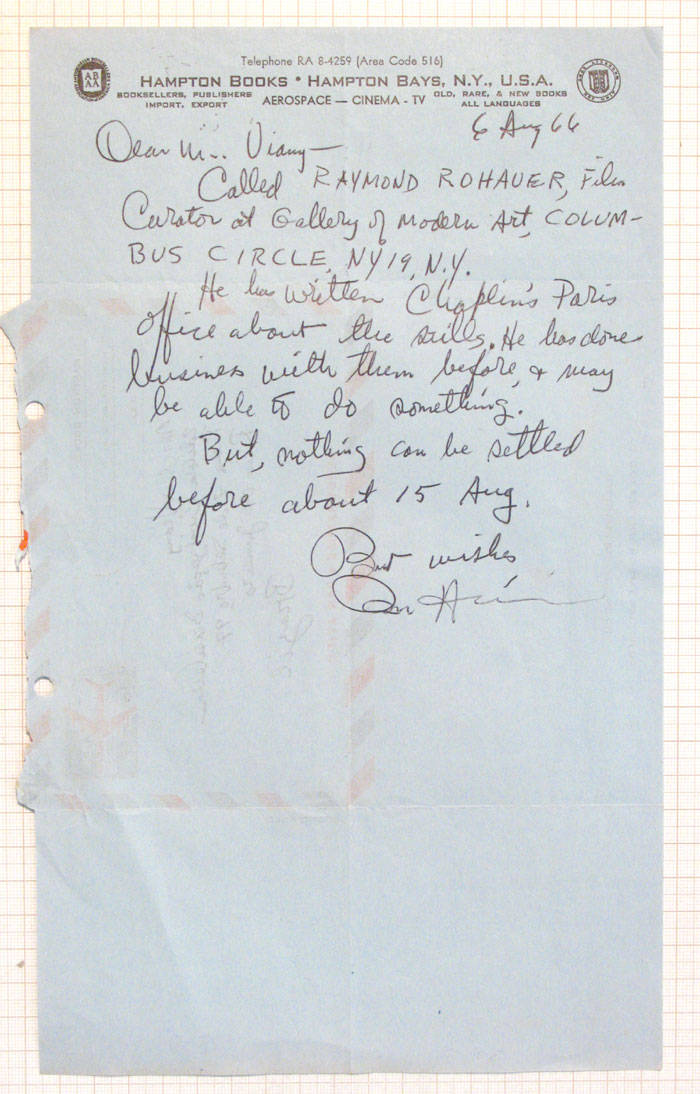 Telephone RA 8-4259 (Area Code 516)
ABAA
HAMPTON BOOKS • HAMPTON BAYS, N.Y., U.S.A.
BOOKSELLERS, PUBLISHERS
IMPORT, EXPORT
AEROSPACE — CINEMA - TV
OLD, RARE, & NEW BOOKS
ALL LANGUAGES
6 Aug 66
Dear M.. Viany—
Called RAYMOND ROHAUER, Film
Curator at Gallery of Modern Art, COLUM-
BUS CIRCLE, NY 19, N.Y.
He has written Chaplin's Paris
office about the stills. He has done
business with them before, & may
be able to do something.
But, nothing can be settled
before about 15 Aug.
Best wishes